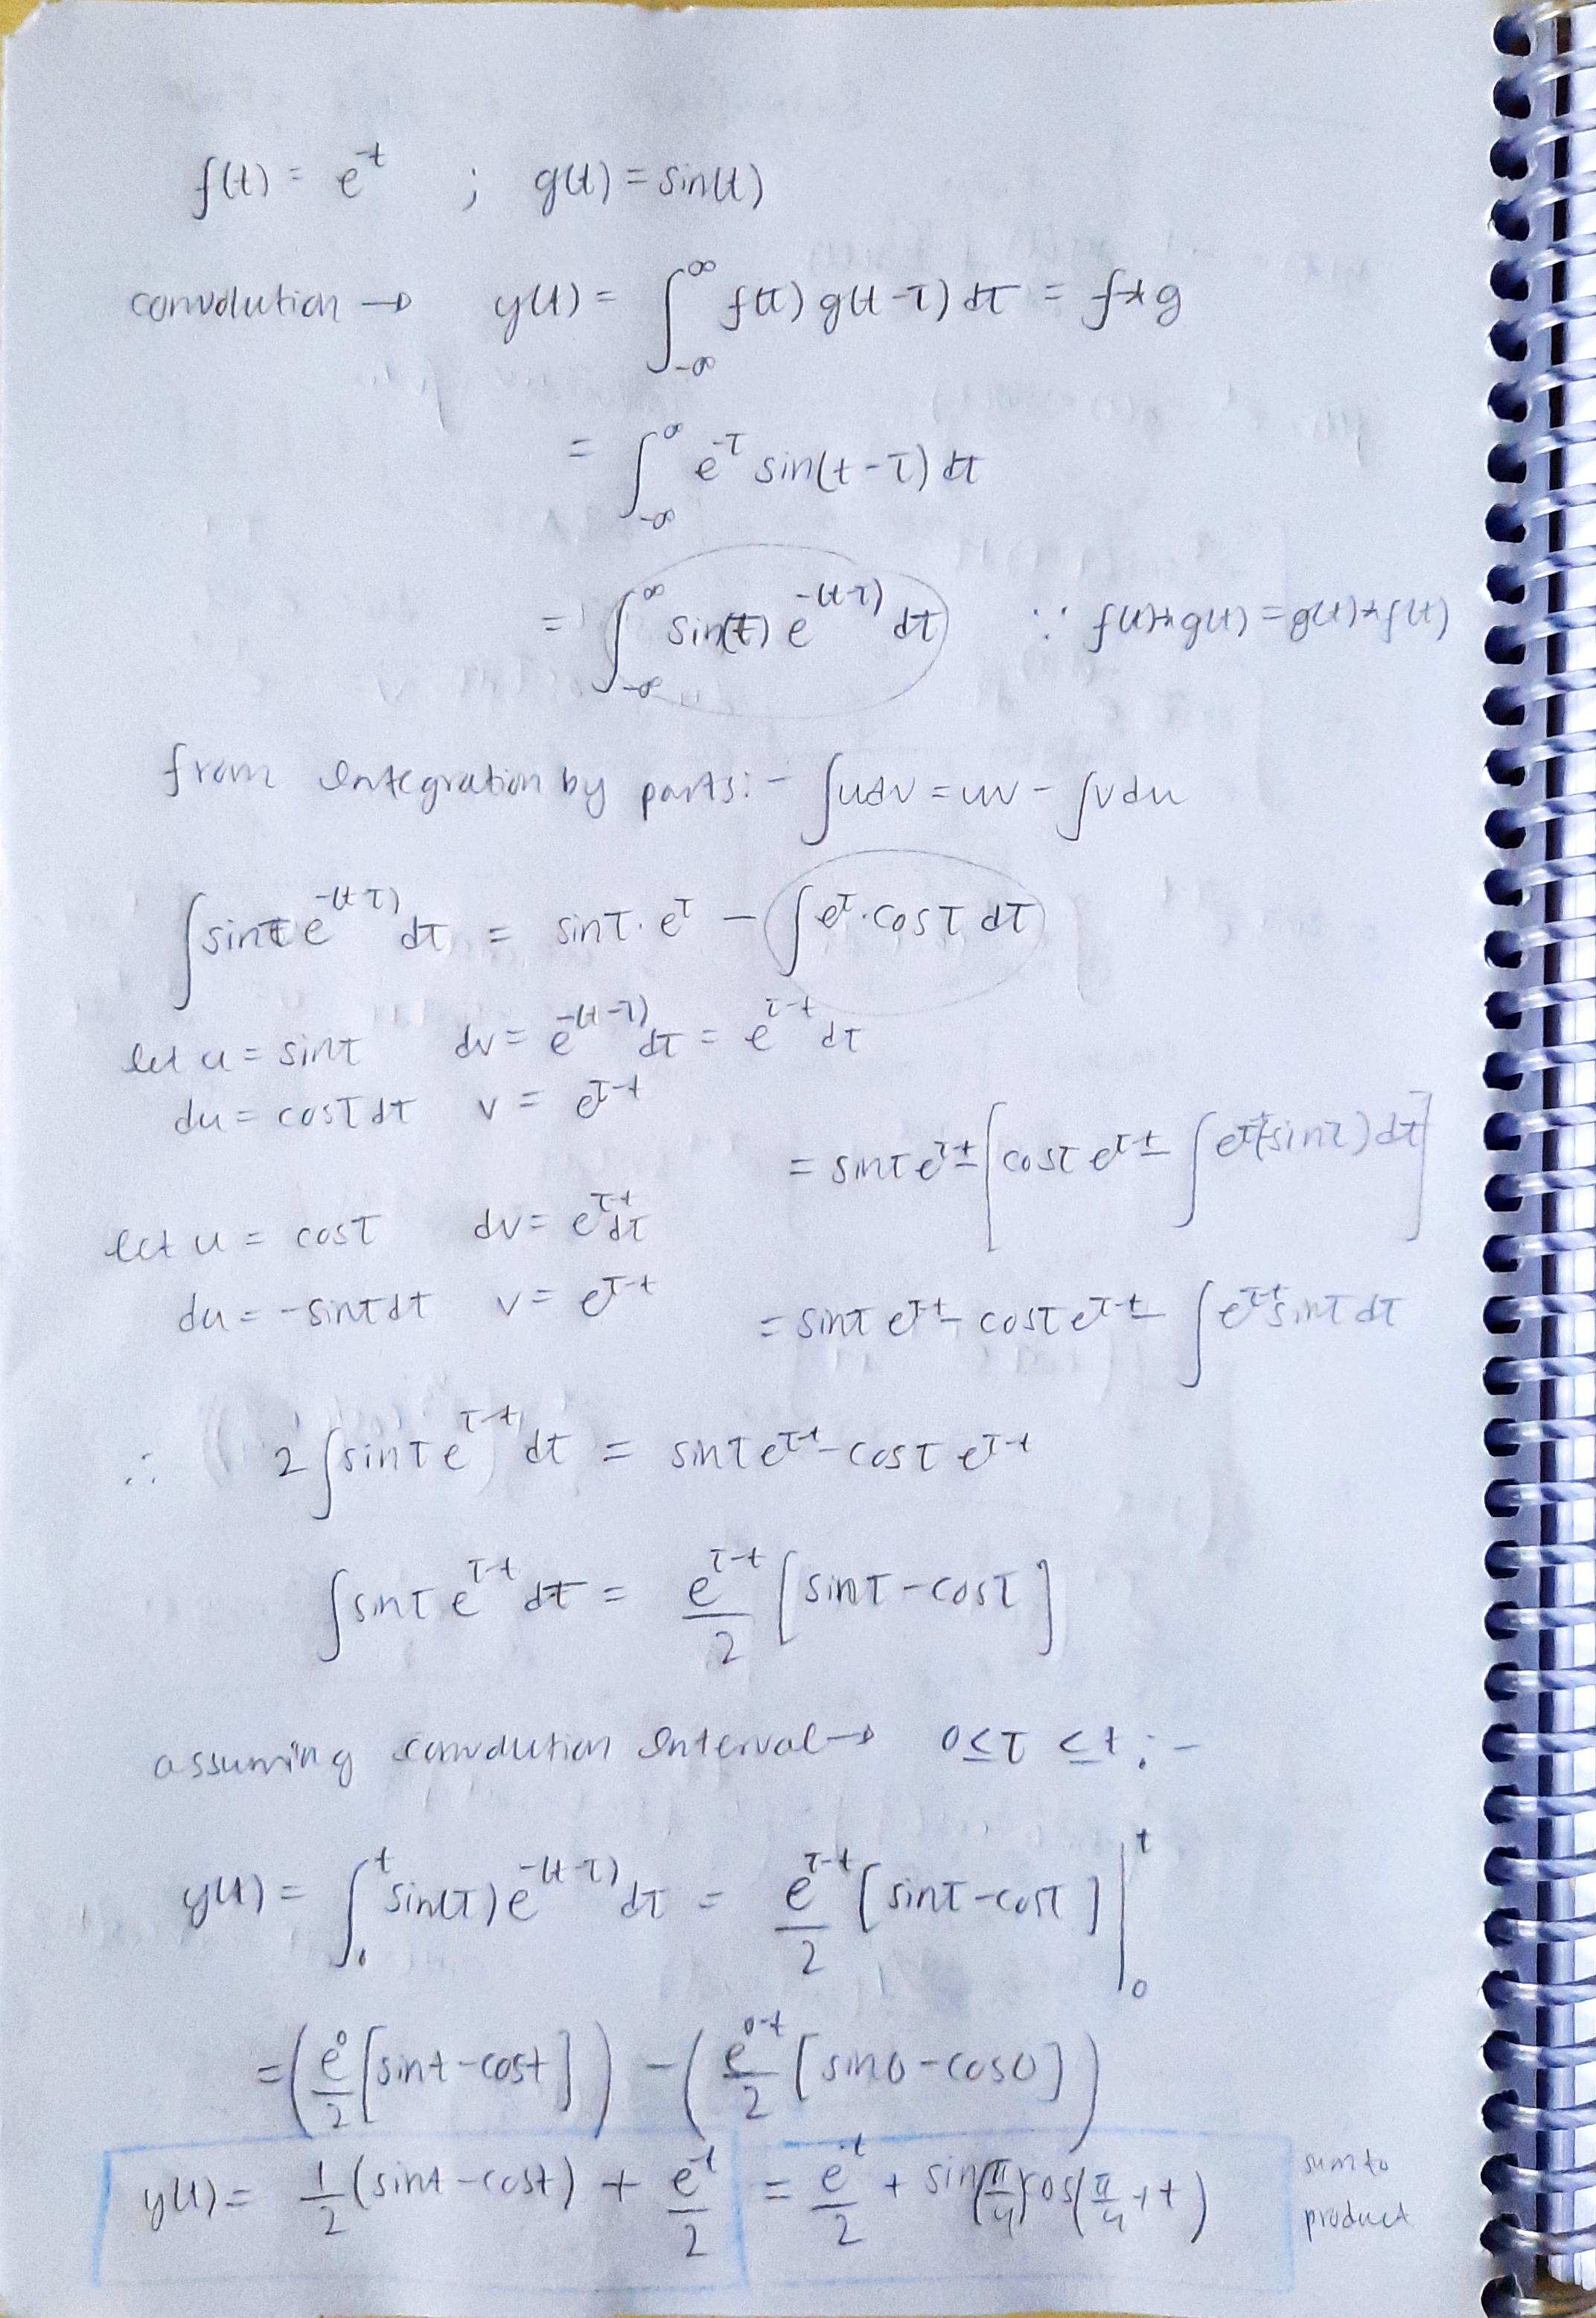 f(t) = e^-t ; g(t) = sin(t)
convolution → y(t) = ∫_-∞^∞ f(τ) g(t-τ) dτ = f*g
= ∫_-∞^∞ e^-τ sin(t-τ) dτ
= ∫_-∞^∞ sin(τ) e^-(t-τ) dτ ∵ f(t)*g(t) = g(t)*f(t)
from Integration by parts:- ∫udv = uv - ∫vdu
∫sinτ e^-(t-τ) dτ = sinτ·e^τ - ∫e^τ·cosτ dτ
let u = sinτ dv = e^-(t-τ) dτ = e^τ-t dτ
du = cosτ dτ v = e^τ-t
= sinτ e^τ-t - [cosτ e^τ-t - ∫e^τ-t(-sinτ) dτ]
let u = cosτ dv = e^τ-t dτ
du = -sinτ dτ v = e^τ-t
= sinτ e^τ-t - cosτ e^τ-t - ∫e^τ-t sinτ dτ
∴ 2∫sinτ e^τ-t dτ = sinτ e^τ-t - cosτ e^τ-t
∫sinτ e^τ-t dτ = e^τ-t/2 [sinτ - cosτ]
assuming convolution Interval → 0≤τ≤t :-
y(t) = ∫_0^t sin(τ) e^-(t-τ) dτ = e^τ-t/2 [sinτ - cosτ] |_0^t
= (e^0/2 [sint - cost]) - (e^0-t/2 [sin0 - cos0])
y(t) = 1/2 (sint - cost) + e^-t/2 = e^-t/2 + sin(π/4) cos(π/4 + t)
sum to
product